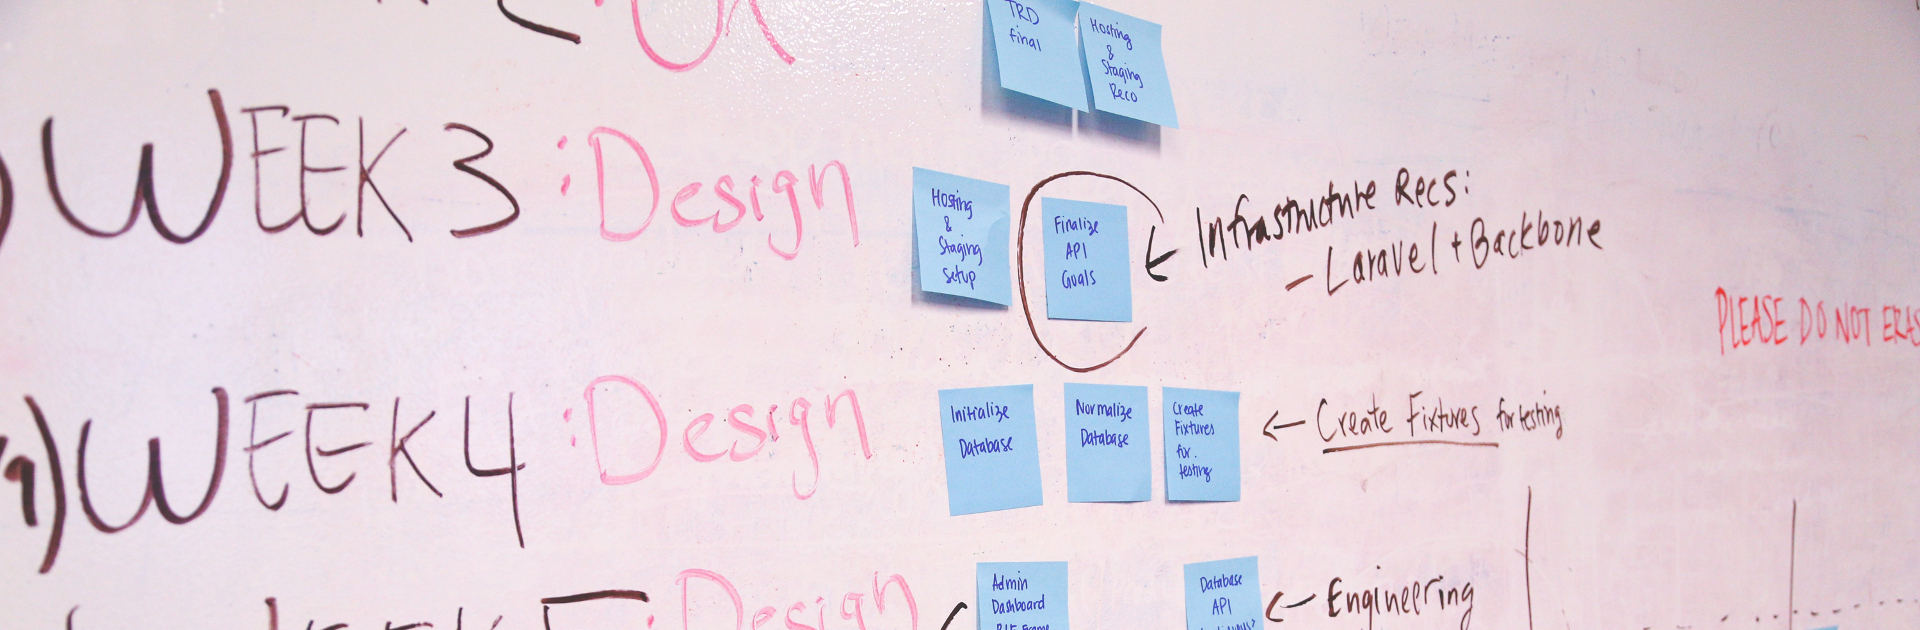 TRD
final
Hosting
&
Staging
Reco
WEEK 3 : Design
Hosting
&
Staging
Setup
Finalize
API
Goals
Infrastructure Recs:
- Laravel + Backbone
PLEASE DO NOT ERAS
WEEK 4 : Design
Initialize
Database
Normalize
Database
Create
Fixtures
for.
testing
← Create Fixtures for testing
: Design
Admin
Dashboard
Database
API
← Engineering